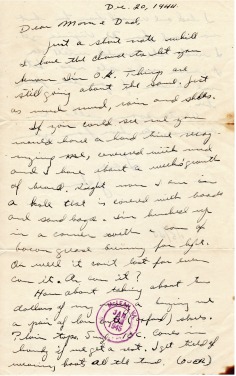 Dec. 20, 1944
Dear Mom & Dad,
Just a short note while
I have the chance to let you
know I'm O.K. Things are
still going about the same. Just
as much mud, rain and shells.
If you could see me you
would have a hard time recog-
nizing me, covered with mud
and I have about a week's growth
of beard. Right now I am in
a hole that is covered with boards
and sand bags. I'm huddled up
in a corner with a can of
bacon grease burning for light.
Oh well it can't last for ever
can it. Or can it?
How about taking about ten
dollars of my and buying me
a pair of low shoes.
Plain toes. Comes in
handy if we get a rest. I get tired of
wearing boots all the time. (over)
JAN
1945